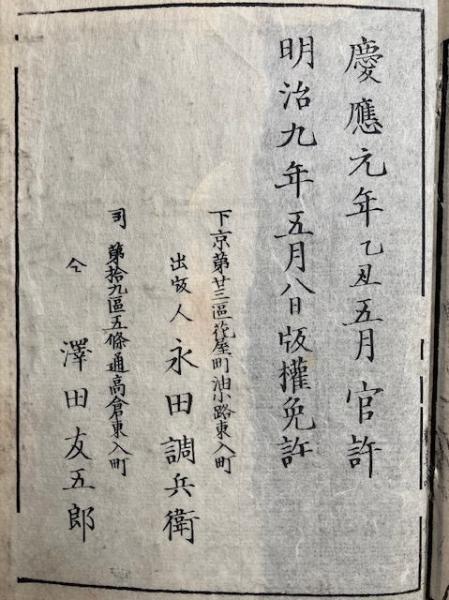 慶應元年乙丑五月官許
明治九年五月八日版權免許
下京第廿三區花屋町油小路東入町
出版人 永田調兵衛
司 第拾九區五條通高倉東入町
仝 澤田友五郎